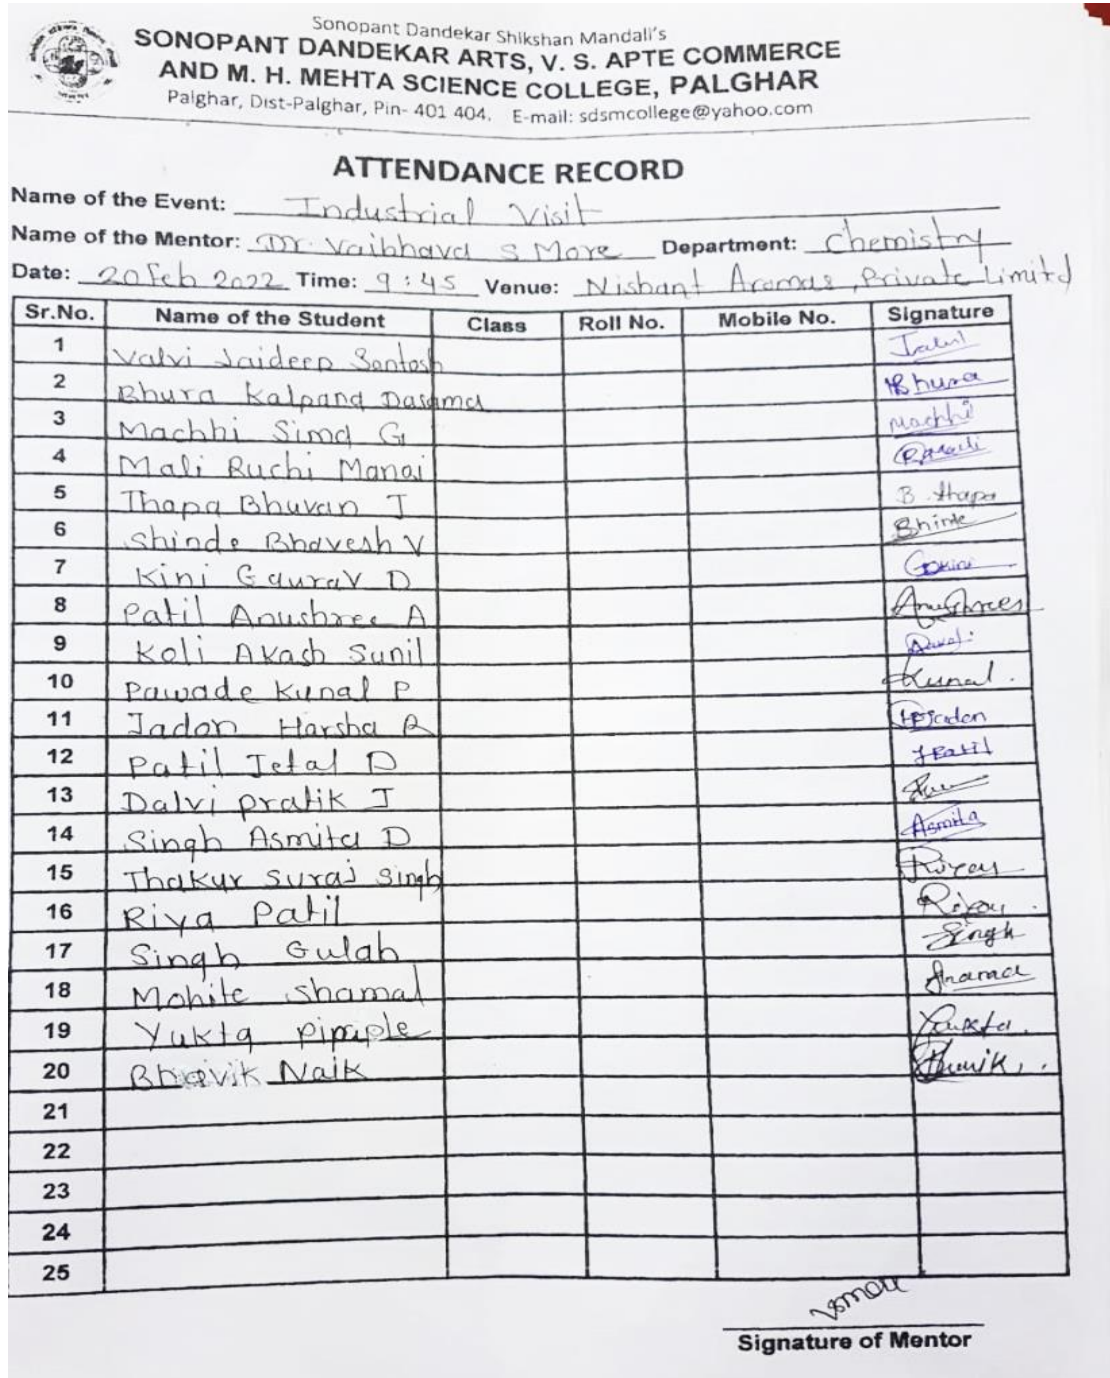 Sonopant Dandekar Shikshan Mandali's
SONOPANT DANDEKAR ARTS, V. S. APTE COMMERCE
AND M. H. MEHTA SCIENCE COLLEGE, PALGHAR
Palghar, Dist-Palghar, Pin- 401 404. E-mail: sdsmcollege@yahoo.com
ATTENDANCE RECORD
Name of the Event: Industrial Visit
Name of the Mentor: Dr. Vaibhava S More Department: Chemistry
Date: 20 Feb 2022 Time: 9:45 Venue: Nishant Aromas, Private Limitd
Sr.No. Name of the Student Class Roll No. Mobile No. Signature
1 Valvi Jaideep Santosh
2 Bhura Kalpana Dasama Bhura
3 Machhi Sima G Machhi
4 Mali Ruchi Manoj
5 Thapa Bhuvan J B. Thapa
6 Shinde Bhavesh V
7 Kini Gaurav D
8 Patil Anushree A Anushree
9 Koli Akash Sunil
10 Pawade Kunal P Kunal.
11 Jadon Harsha R HRJadon
12 Patil Jetal D JPatil
13 Dalvi pratik J
14 Singh Asmita D Asmita
15 Thakur Suraj Singh
16 Riya Patil
17 Singh Gulab Singh
18 Mohite Shamal
19 Yukta pimple Yukta.
20 Bhavik Naik Bhavik
21
22
23
24
25
vsmore
Signature of Mentor